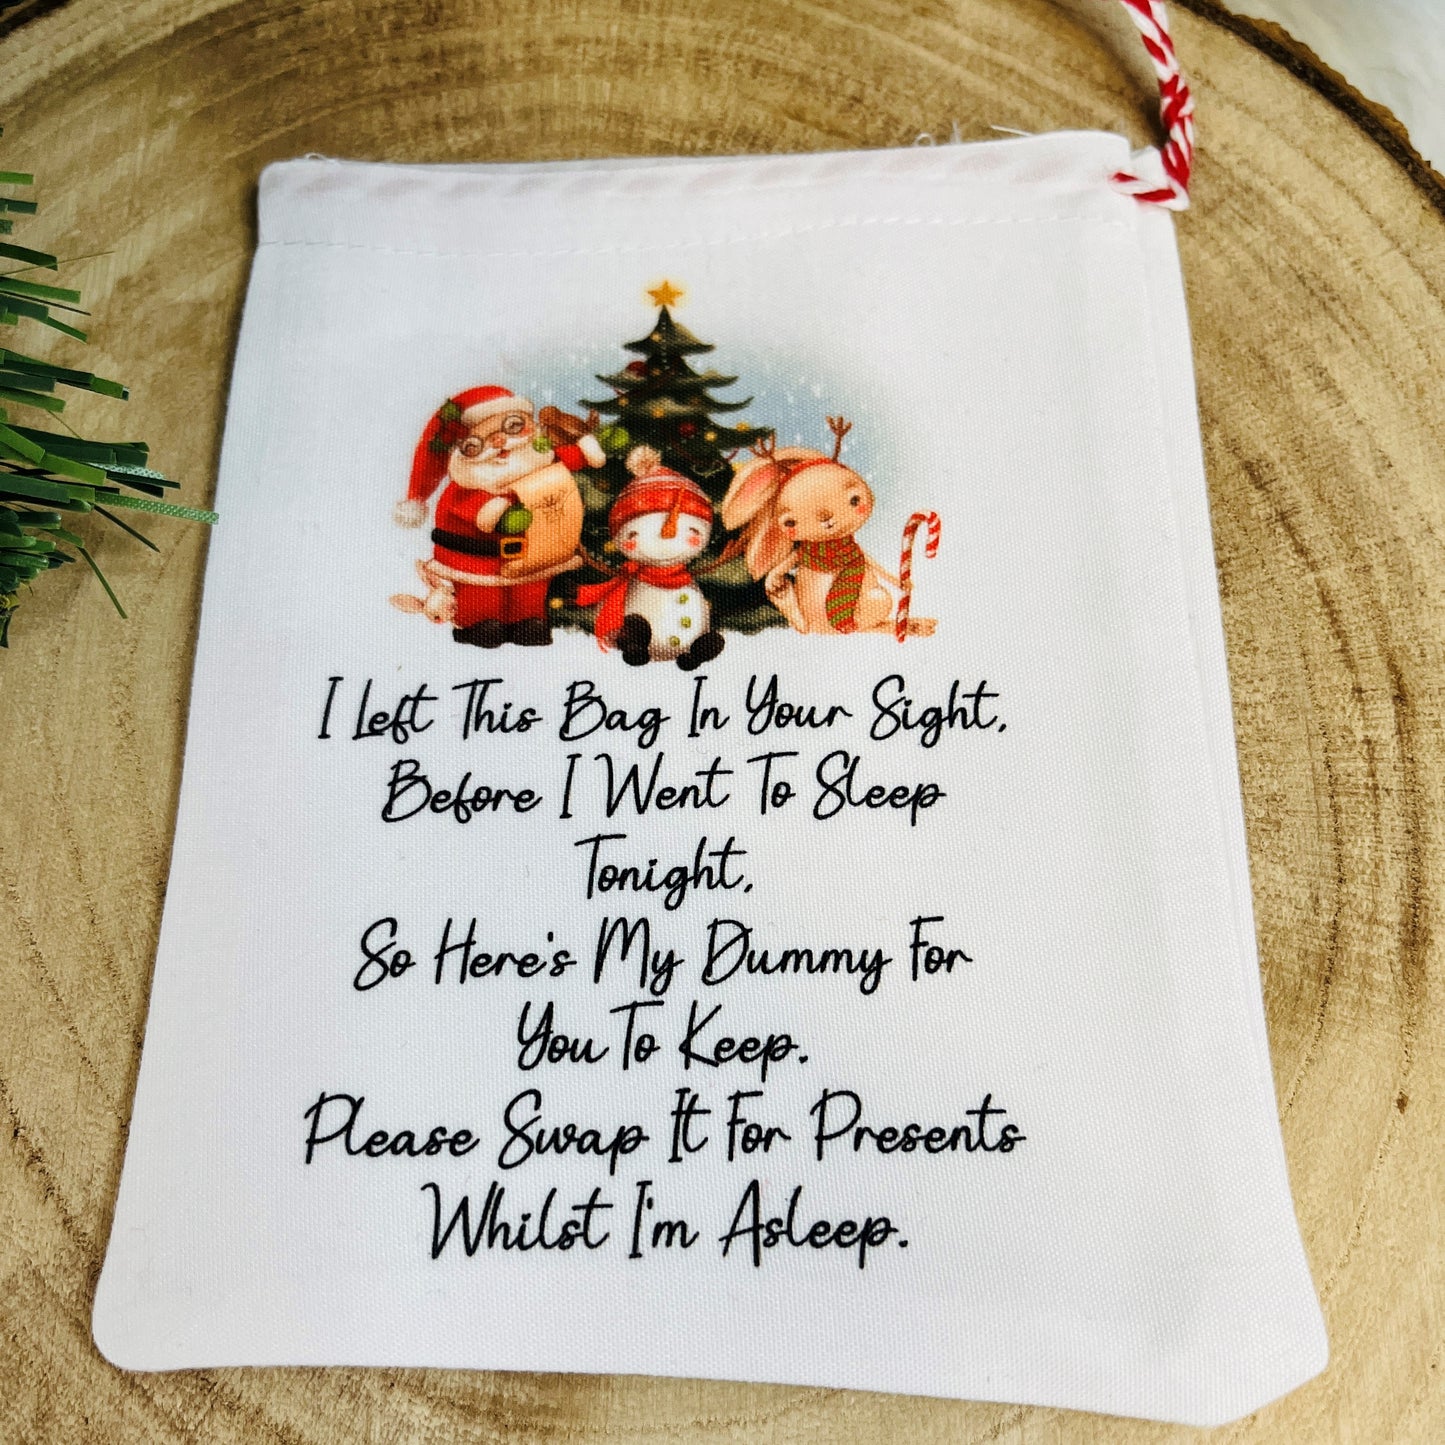 I Left This Bag In Your Sight,
Before I Went To Sleep
Tonight,
So Here's My Dummy For
You To Keep.
Please Swap It For Presents
Whilst I'm Asleep.